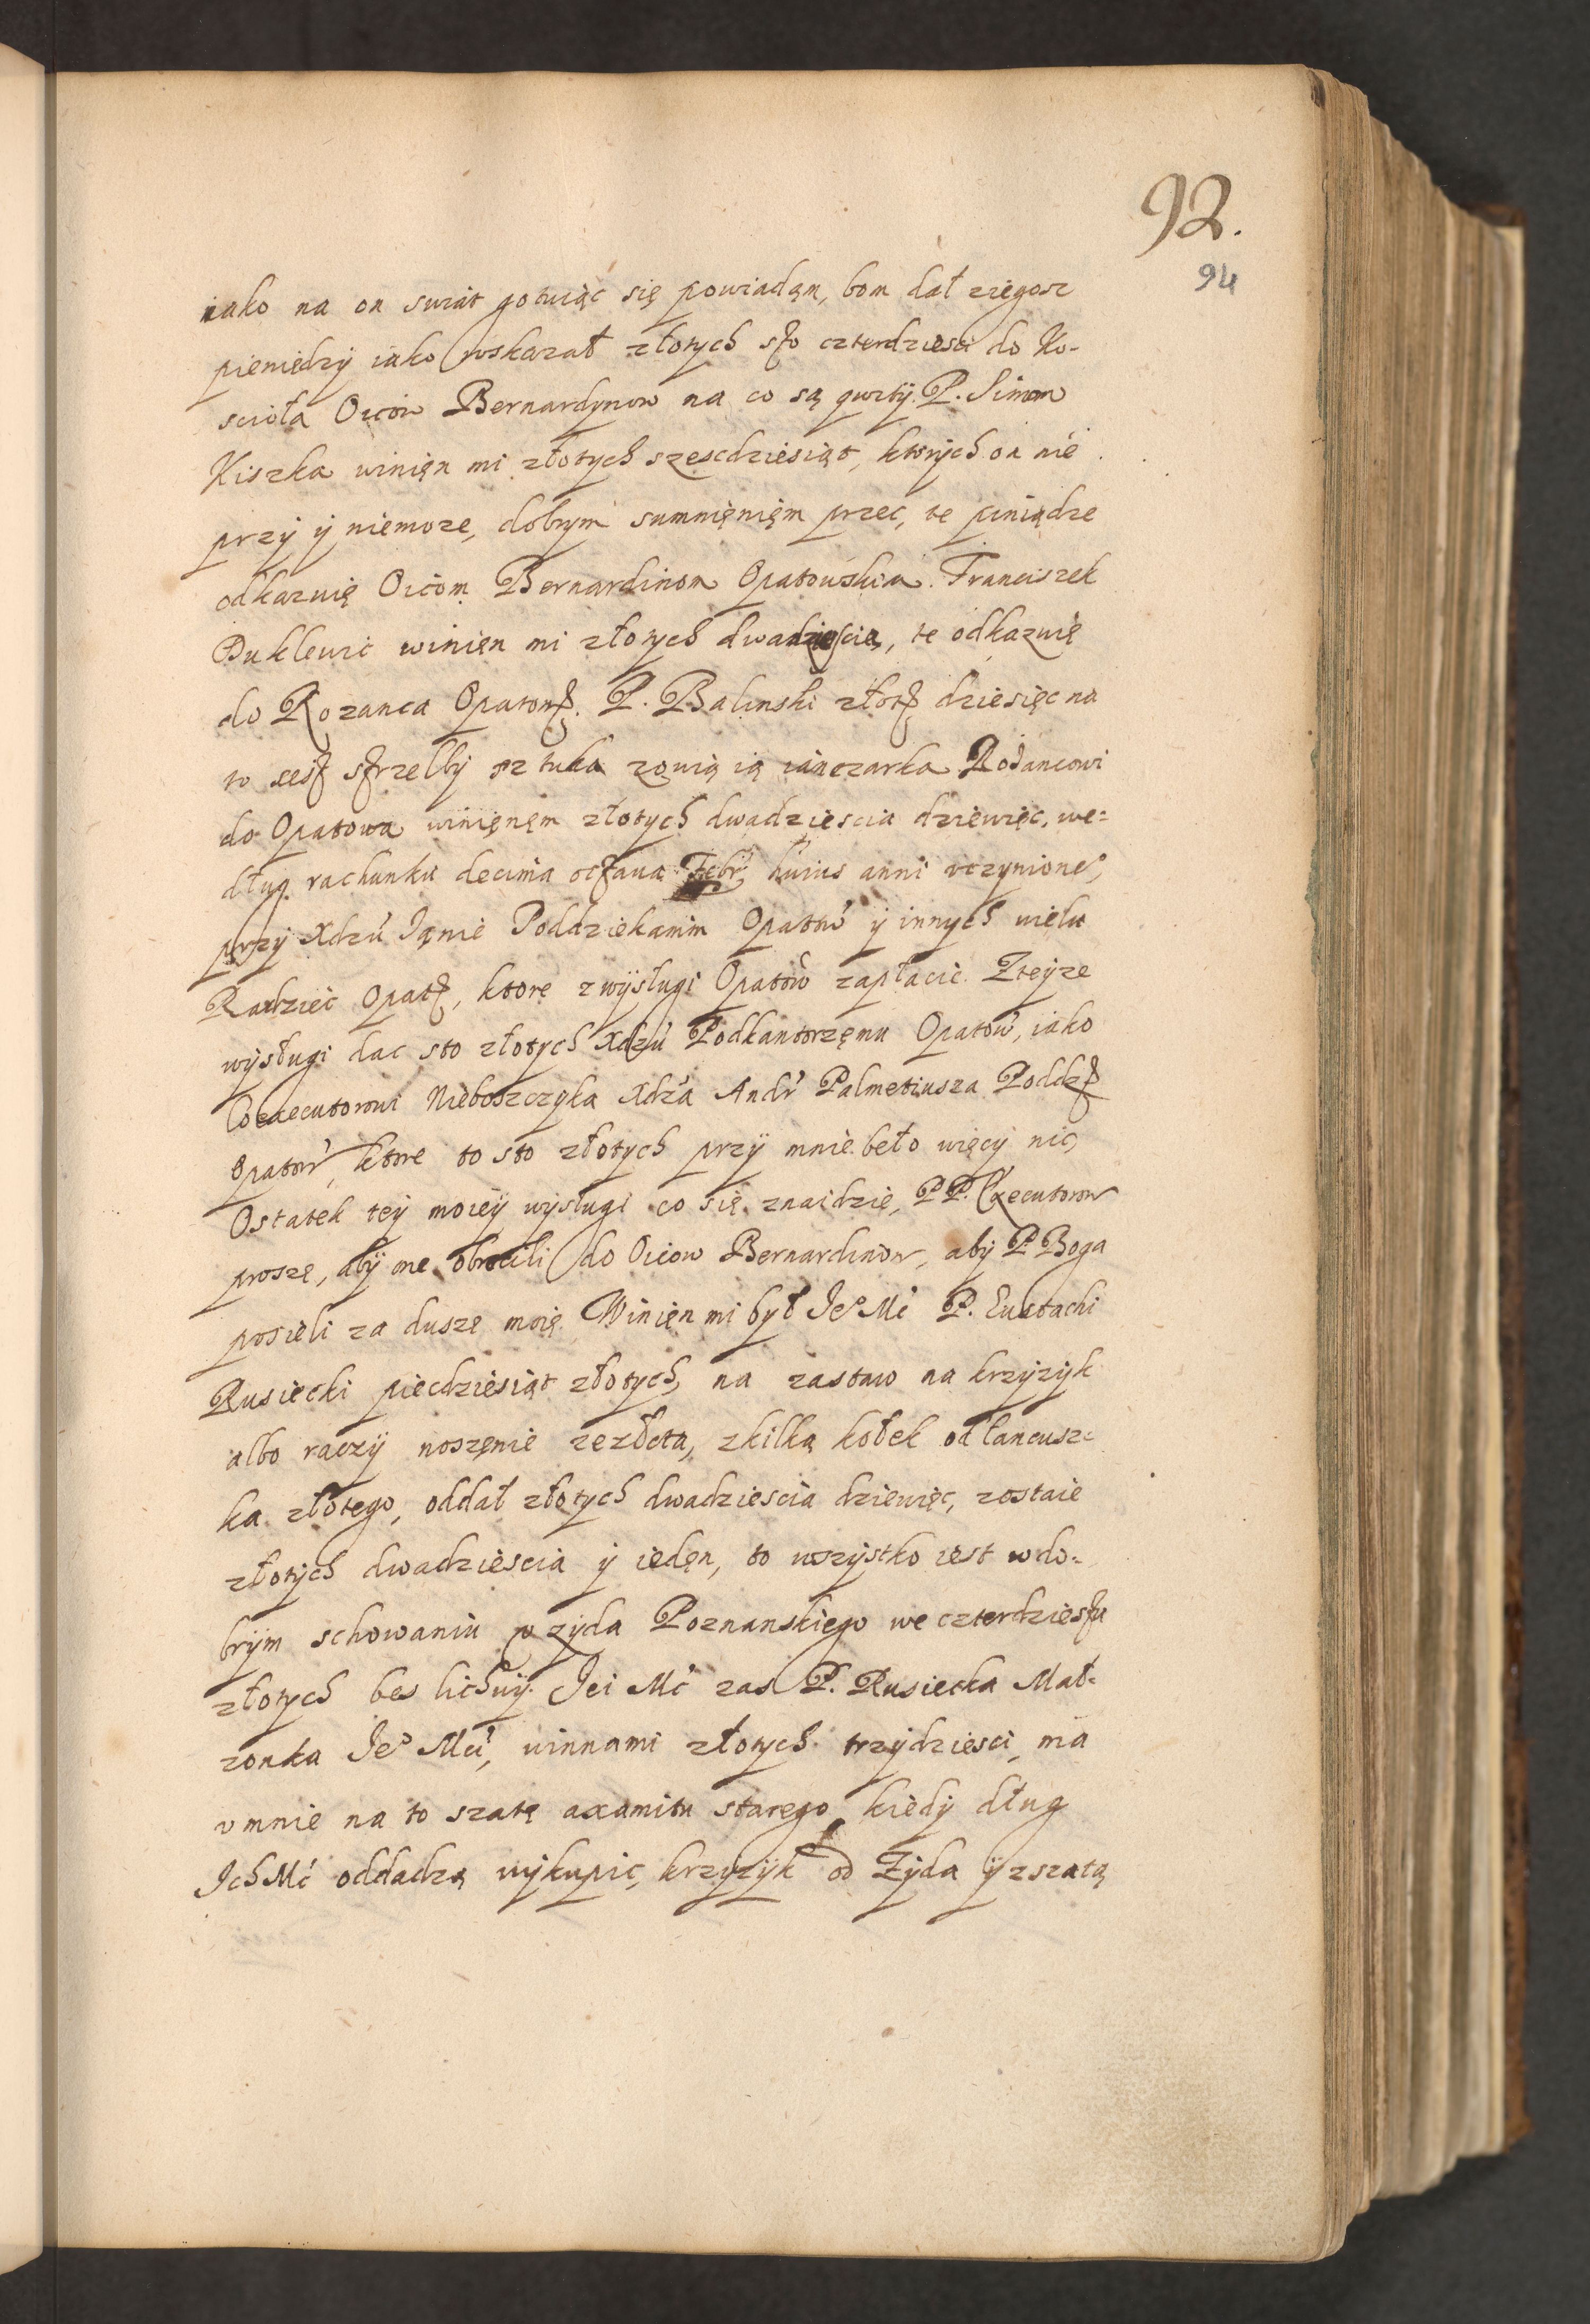 92.
94
iako na on swiat gotuiąc się powiadąm, bom dał ziegosz
pieniędzy iako wskazał złotych sto czterdziesci do Ko-
scioła Oicow Bernardynow na co są qwity. P. Simon
Kiszka winięn mi złotych szescdziesiąt, ktorych on nie
przy y niemoze, dobrym sumnięnięm przec, te piniądze
odkazuię Oicom Bernardinom Opatowskim. Franciszek
Duklewic winięn mi złotych dwadziescia, te odkazuię
do Rozanca Opatow. P. Balinski złot dziesięc na
to iest strzelby sztuka zowią ią ianczarka Rożancowi
do Opatowa winięnęm złotych dwadziescia dziewięc, we-
dług rachunku decima octaua Febr huius anni vczynione°,
przy Xdzu Ięnie Poddziekanim Opatow y innych wielu
Radziec Opat, ktore zwysługi Opatow zapłacic. Zteyze
wysługi dac sto złotych Xdzu Podkantorzęmu Opatow, iako
Coexecutorowi Nieboszczyka Xdza Andr Palmetiusza Poddz
Opatow, ktore to sto złotych przy mnie beło więcy nic,
Ostatek tey moiey wysługi co się znaidzie, PP. Executorow
proszę, aby one obrocili do Oicow Bernardinow, aby P. Boga
prosieli za duszę moię. Winięn mi był Je° Mc P. Eustachi
Rusiecki piecdziesiąt złotych, na zastaw na krzyzyk
albo raczy noszęnie zezłota, zkilką kołek od łancusz-
ka złotego, oddał złotych dwadziescia dziewięc, zostaie
złotych dwadziescia y iedęn, to wszystko iest w do-
brym schowaniu v zyda Poznanskiego we czterdziestu
złotych bes lichwy. Jei Mc zas P. Rusiecka Mał-
zonka Je° Mci, winnami złotych trzydziesci, ma
v mnie na to szatę axamitu starego, kiedy dług
Ich Mc oddadzą wykupic, krzyzyk od Zyda y zszatą